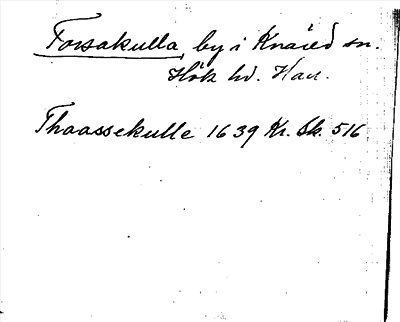 Forsakulla, by i Knäred sn.
Hök hd. Hall.
Thoassekulle 1639 Kr. Sk. 516.